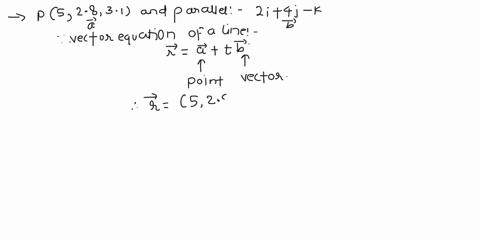 → P(5, 2.8, 3.1) and parallel:- 2i+4j-k
a⃗ b⃗
∵ vector equation of a line:-
r⃗ = a⃗ + t b⃗
↑ ↑
point vector.
∴ r⃗ = (5, 2.